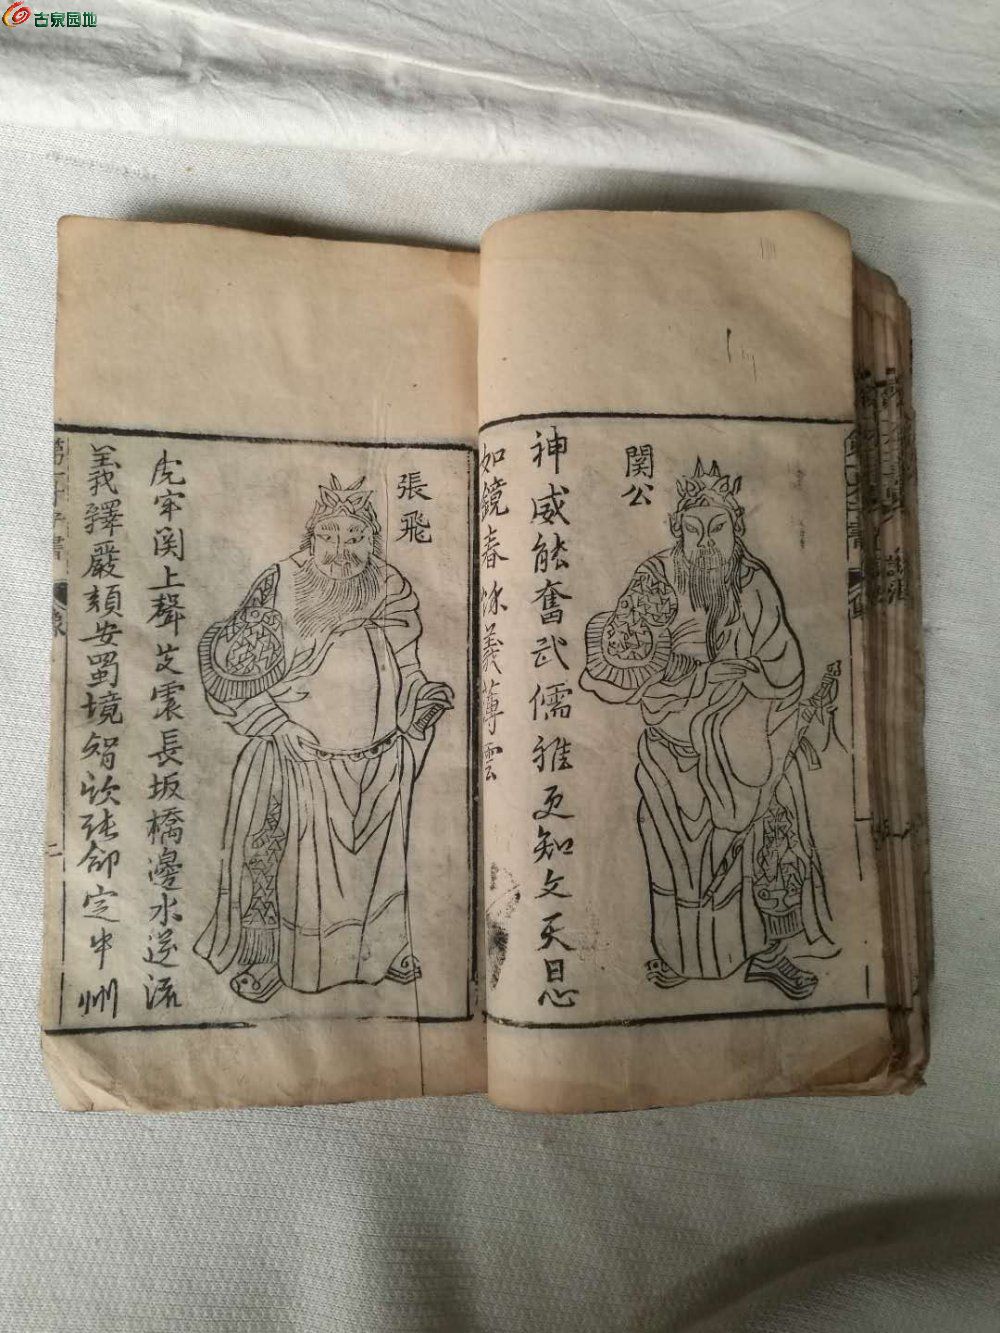 古泉园地
関公
神威能奮武儒雅更知文天日心
如鏡春秌義薄雲
張飛
虎牢関上聲先震長坂橋邊水逆流
義釋嚴頼安蜀境智欺張郃定中州
第一才子書
二